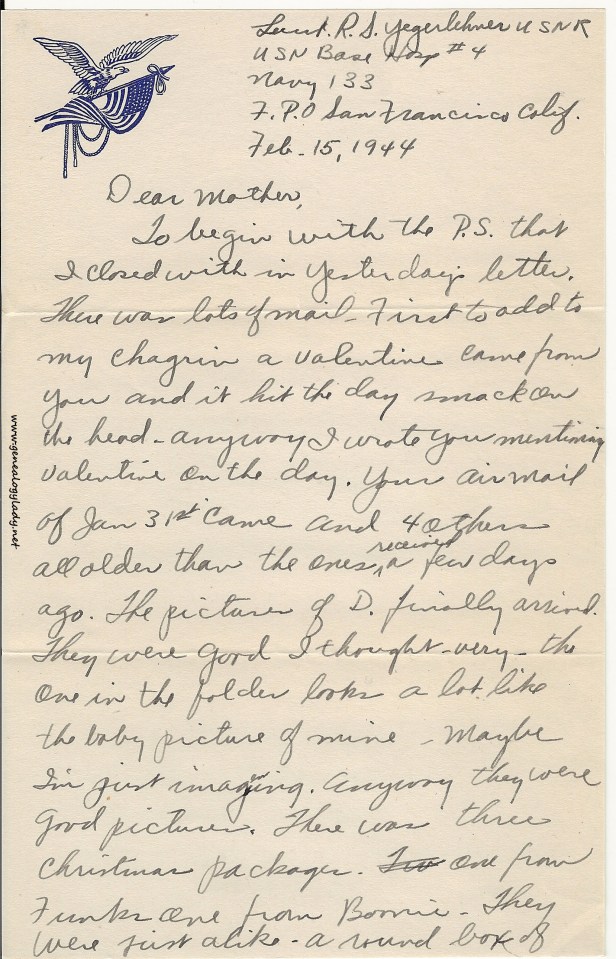 Lieut. R. S. Yegerlehner USNR
USN Base Hosp #4
Navy 133
F.P.O San Francisco Calif.
Feb. 15, 1944
Dear Mother,
To begin with the P.S. that
I closed with in yesterdays letter.
There was lots of mail - First to add to
my chagrin a valentine came from
you and it hit the day smack on
the head - anyway I wrote you mentioning
valentine on the day. Your air mail
of Jan 31st came and 4 others
all older than the ones received a few days
ago. The pictures of D. finally arrived.
They were good I thought - very - the
one in the folder looks a lot like
the baby picture of mine - Maybe
I'm just imagining. Anyway they were
good pictures. There was three
Christmas packages. Two one from
Funks one from Boonie - They
were just alike - a round box of
www.genealogylady.net